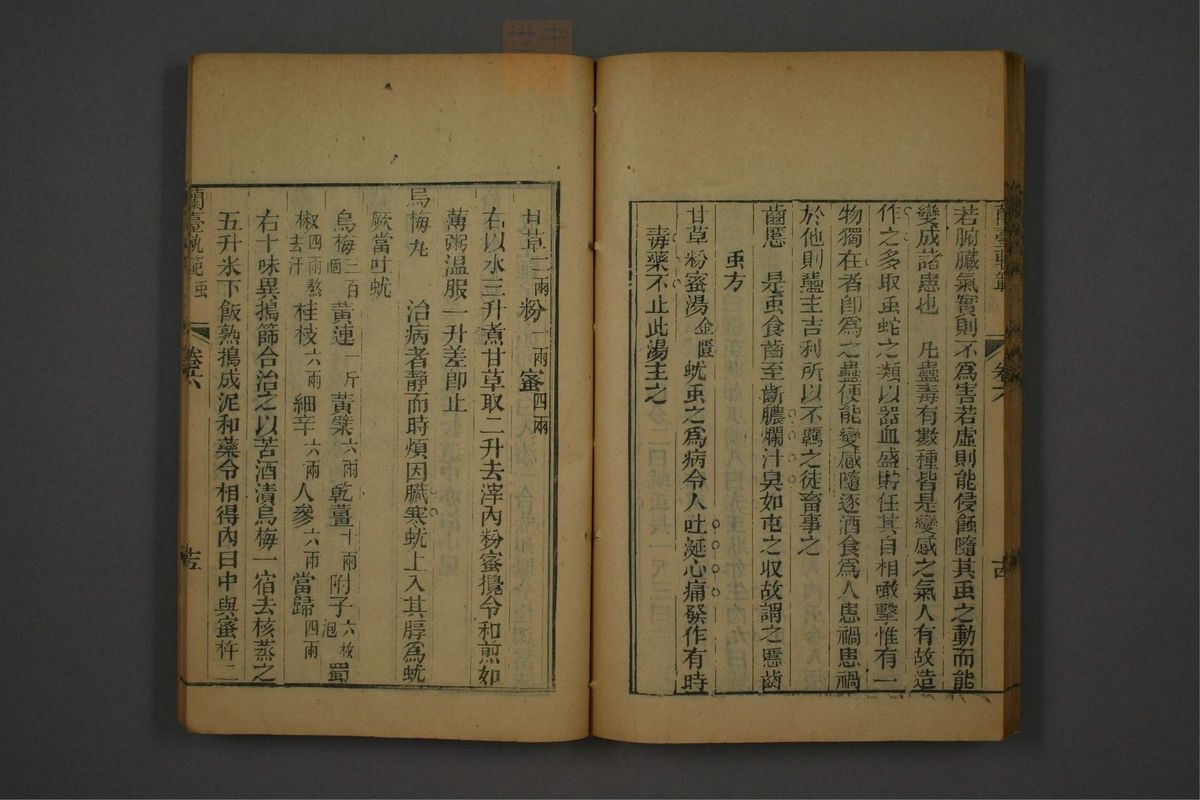 蘭臺軌範
卷六
古
若腑臟氣實則不為害若虛則能侵蝕隨其虫之動而能
變成諸患也 凡蠱毒有數種皆是變感之氣人有故造
作之多取虫蛇之類以器皿盛貯任其自相噉擊惟有一
物獨在者即為之蠱便能變感隨逐酒食為人患禍患禍
於他則蠱主吉利所以不羈之徒畜事之
齒慝 是虫食齒至齗膿爛汁臭如
之
故謂之慝齒
虫方
甘草粉蜜湯 金匱 蚘虫之為病令人吐涎心痛發作有時
毒藥不止此湯主之
甘草二兩 粉一兩 蜜四兩
右以水三升煮甘草取二升去滓內粉蜜攪令和煎如
薄粥溫服一升差即止
烏梅丸 治病者靜而時煩因臟寒蚘上入其膈為蚘
厥當吐蚘
烏梅三百個 黃連一斤 黃檗六兩 乾薑十兩 附子六枚泡 蜀
椒四兩熬去汗 桂枝六兩 細辛六兩 人參六兩 當歸四兩
右十味異搗篩合治之以苦酒漬烏梅一宿去核蒸之
五升米下飯熟搗成泥和藥令相得內臼中與蜜杵二
蘭臺軌範 虫
卷六